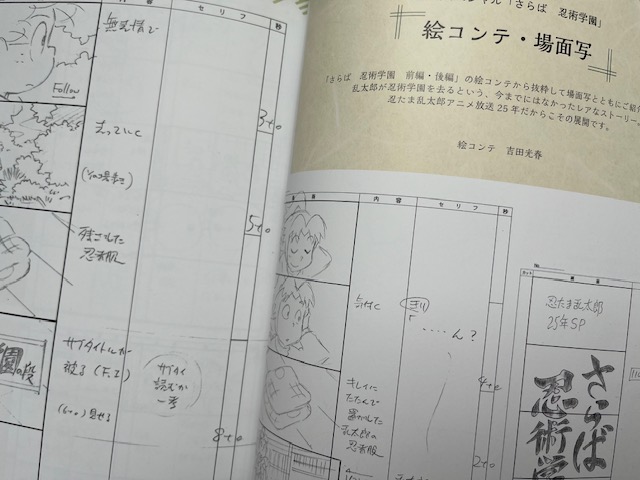 無表情で
Follow
3+0
去っていく
5+0
残された
忍者服
サブタイトルが
被る(F.I)
(6+0)見せる
サブタイ
読むか
一考
園の段
8+0
ャル「さらば 忍術学園」
絵コンテ・場面写
「さらば 忍術学園 前編・後編」の絵コンテから抜粋して場面写とともにご紹介
乱太郎が忍術学園を去るという、今までにはなかったレアなストーリー。
忍たま乱太郎アニメ放送25年だからこその展開です。
絵コンテ 吉田光春
内容
セリフ
秒
気付く
……ん?
4+0
キレイに
たたんで
置かれた
乱太郎の
忍者服
2+0
忍たま乱太郎
25年SP
さらば
忍術学